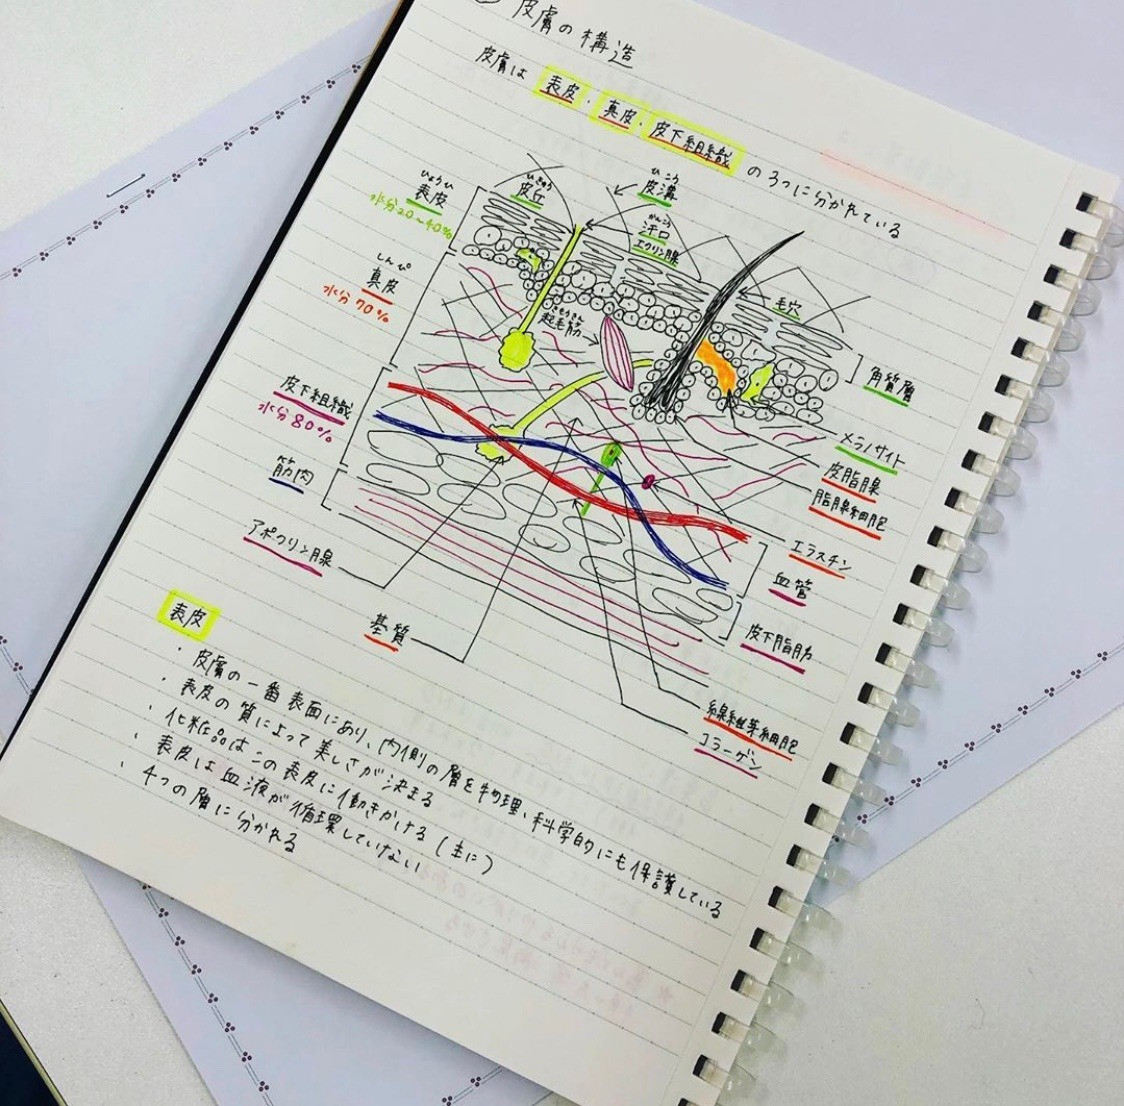 皮膚の構造
皮膚は 表皮・真皮・皮下組織 の3つに分かれている
ひょうひ
表皮
水分20～40%
ひきゅう
皮丘
ひこう
皮溝
かんこう
汗口
エクリン腺
しんぴ
真皮
水分70%
きもうきん
起毛筋
毛穴
角質層
皮下組織
水分80%
メラノサイト
皮脂腺
脂腺細胞
筋肉
エラスチン
血管
アポクリン腺
皮下脂肪
基質
線維芽細胞
コラーゲン
表皮
・皮膚の一番表面にあり、内側の層を物理、科学的にも保護している
・表皮の質によって美しさが決まる
・化粧品はこの表皮に働きかける(主に)
・表皮は血液が循環していない
・4つの層に分かれる